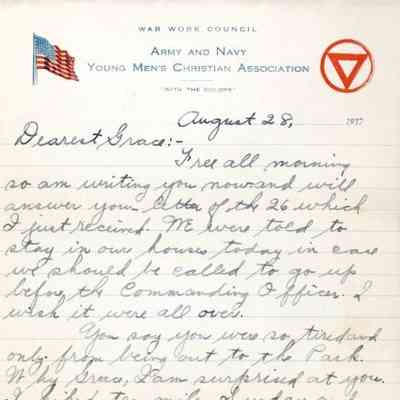 WAR WORK COUNCIL
ARMY AND NAVY
YOUNG MEN'S CHRISTIAN ASSOCIATION
"WITH THE COLORS"
August 28, 1917
Dearest Grace:-
Free all morning
so am writing you now and will
answer your letter of the 26 which
I just received. We were told to
stay in our houses today in case
we should be called to go up
before the Commanding Officer. I
wish it were all over.
You say you were so tired and
only from being out to the Park.
Why Grace, I am surprised at you.
I hiked ten mile Sunday and